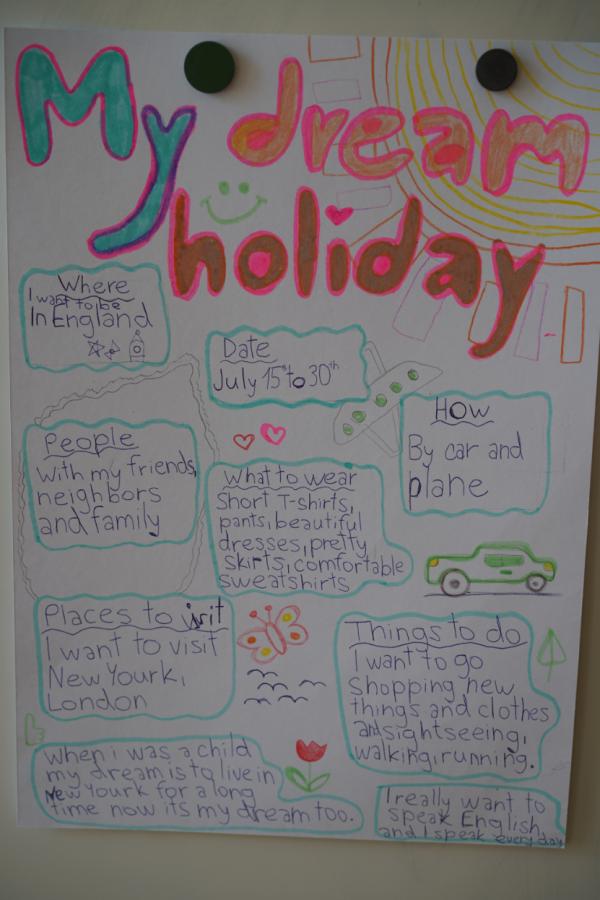 My dream
holiday
Where
I want to be
In England
Date
July 15st to 30th
How
By car and
plane
People
with my friends,
neighbors
and family
What to wear
Short T-shirts,
pants, beautiful
dresses, pretty
skirts, comfortable
sweatshirts
Places to visit
I want to visit
New Yourk,
London
Things to do
I want to go
shopping new
things and clothes
and sightseeing,
walking, running.
when i was a child
my dream is to live in
New Yourk for a long
time now its my dream too.
I really want to
speak English
and I speak every day